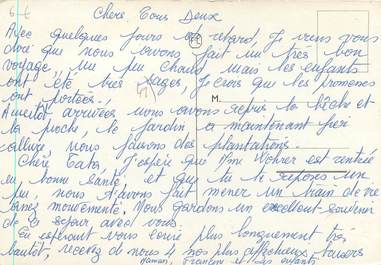 5-E
Chère Tous Deux
Avec quelques jours de retard, Je viens vous
dire que nous avons fait un très bon
voyage, un peu chaud, mais les enfants
ont été très sages, Je crois que les promenes
ont portées.
Aussitot arrivées nous avons repris la bêche et
la pioche, le Jardin a maintenant fier
allure, nous faisons des plantations.
Chère Tata, J'espère que Mme est rentrée
en bonne santé, et que tu te reposes un
peu, nous t'avons fait mener un train de vie
assez mouvementé. Nous gardons un excellent souvenir
de ce sejour avec vous.
En esperant vous écrire plus longuement très
bientôt, recevez de nous 4 nos plus affectueux baisers
Maman, Francine et les enfants
M